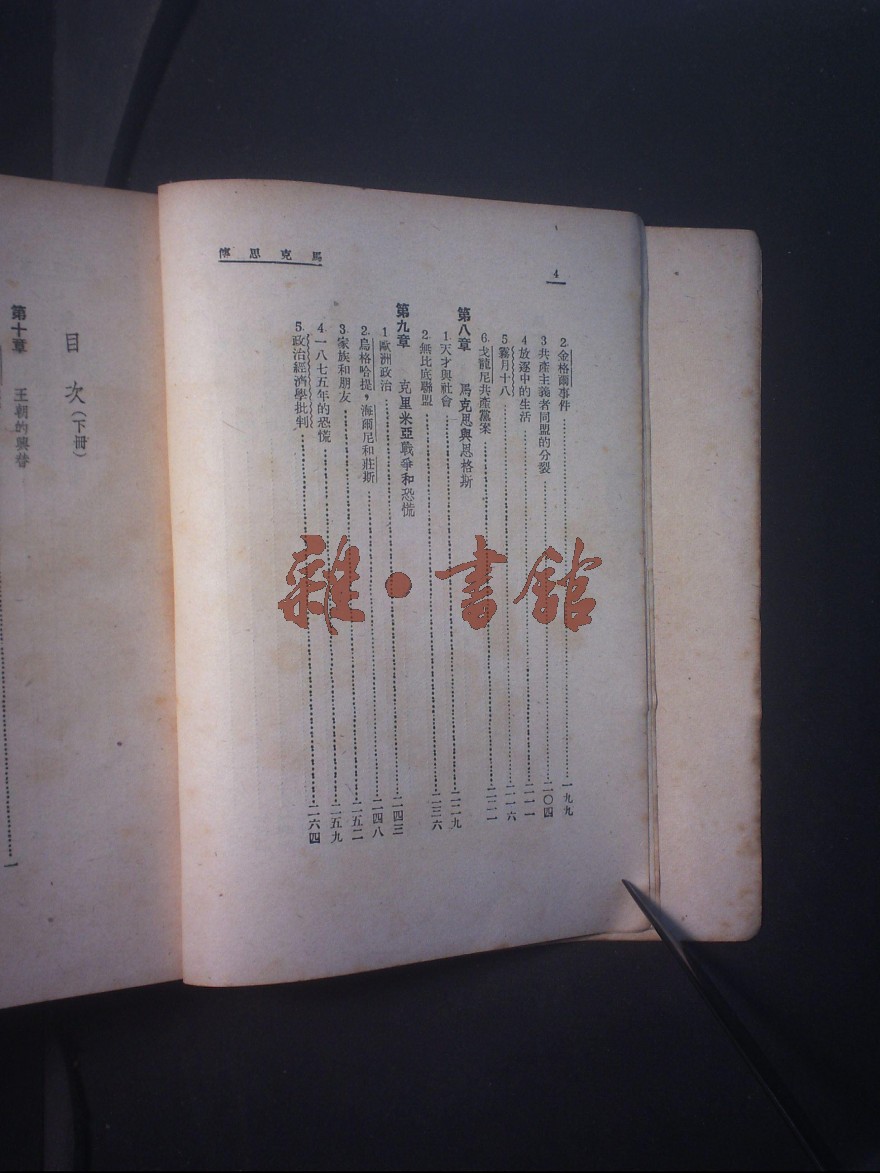 馬克思傳
4
2. 金格爾事件 一九九
3 共產主義者同盟的分裂 二〇四
4 放逐中的生活 二一一
5 霧月十八 二一六
6. 戈龍尼共產黨案 二二一
第八章 馬克思與恩格斯
1. 天才與社會 二二九
2. 無比底聯盟 二三六
第九章 克里米亞戰爭和恐慌
1 歐洲政治 二四三
2. 烏格哈提，海爾尼和莊斯 二四八
3. 家族和朋友 二五二
4 一八七五年的恐慌 二五九
5. 政治經濟學批判 二六四
目次（下冊）
第十章 王朝的興替
一
雜·書館